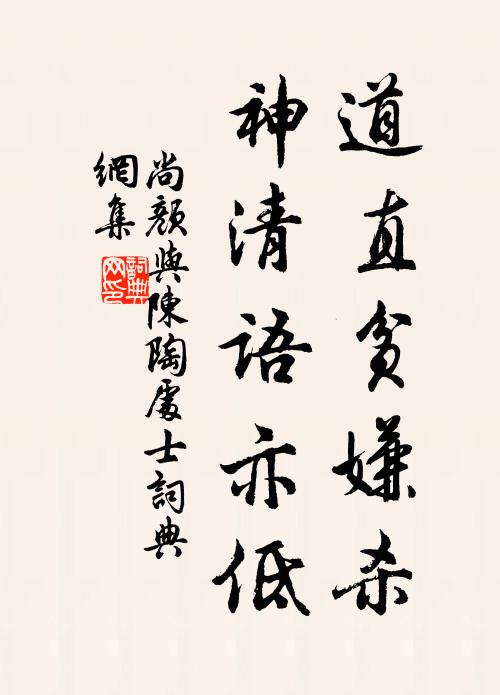 道直貧嫌杀
神清語亦低
尚顏與陳陶處士詞典
網集
詞典
网印